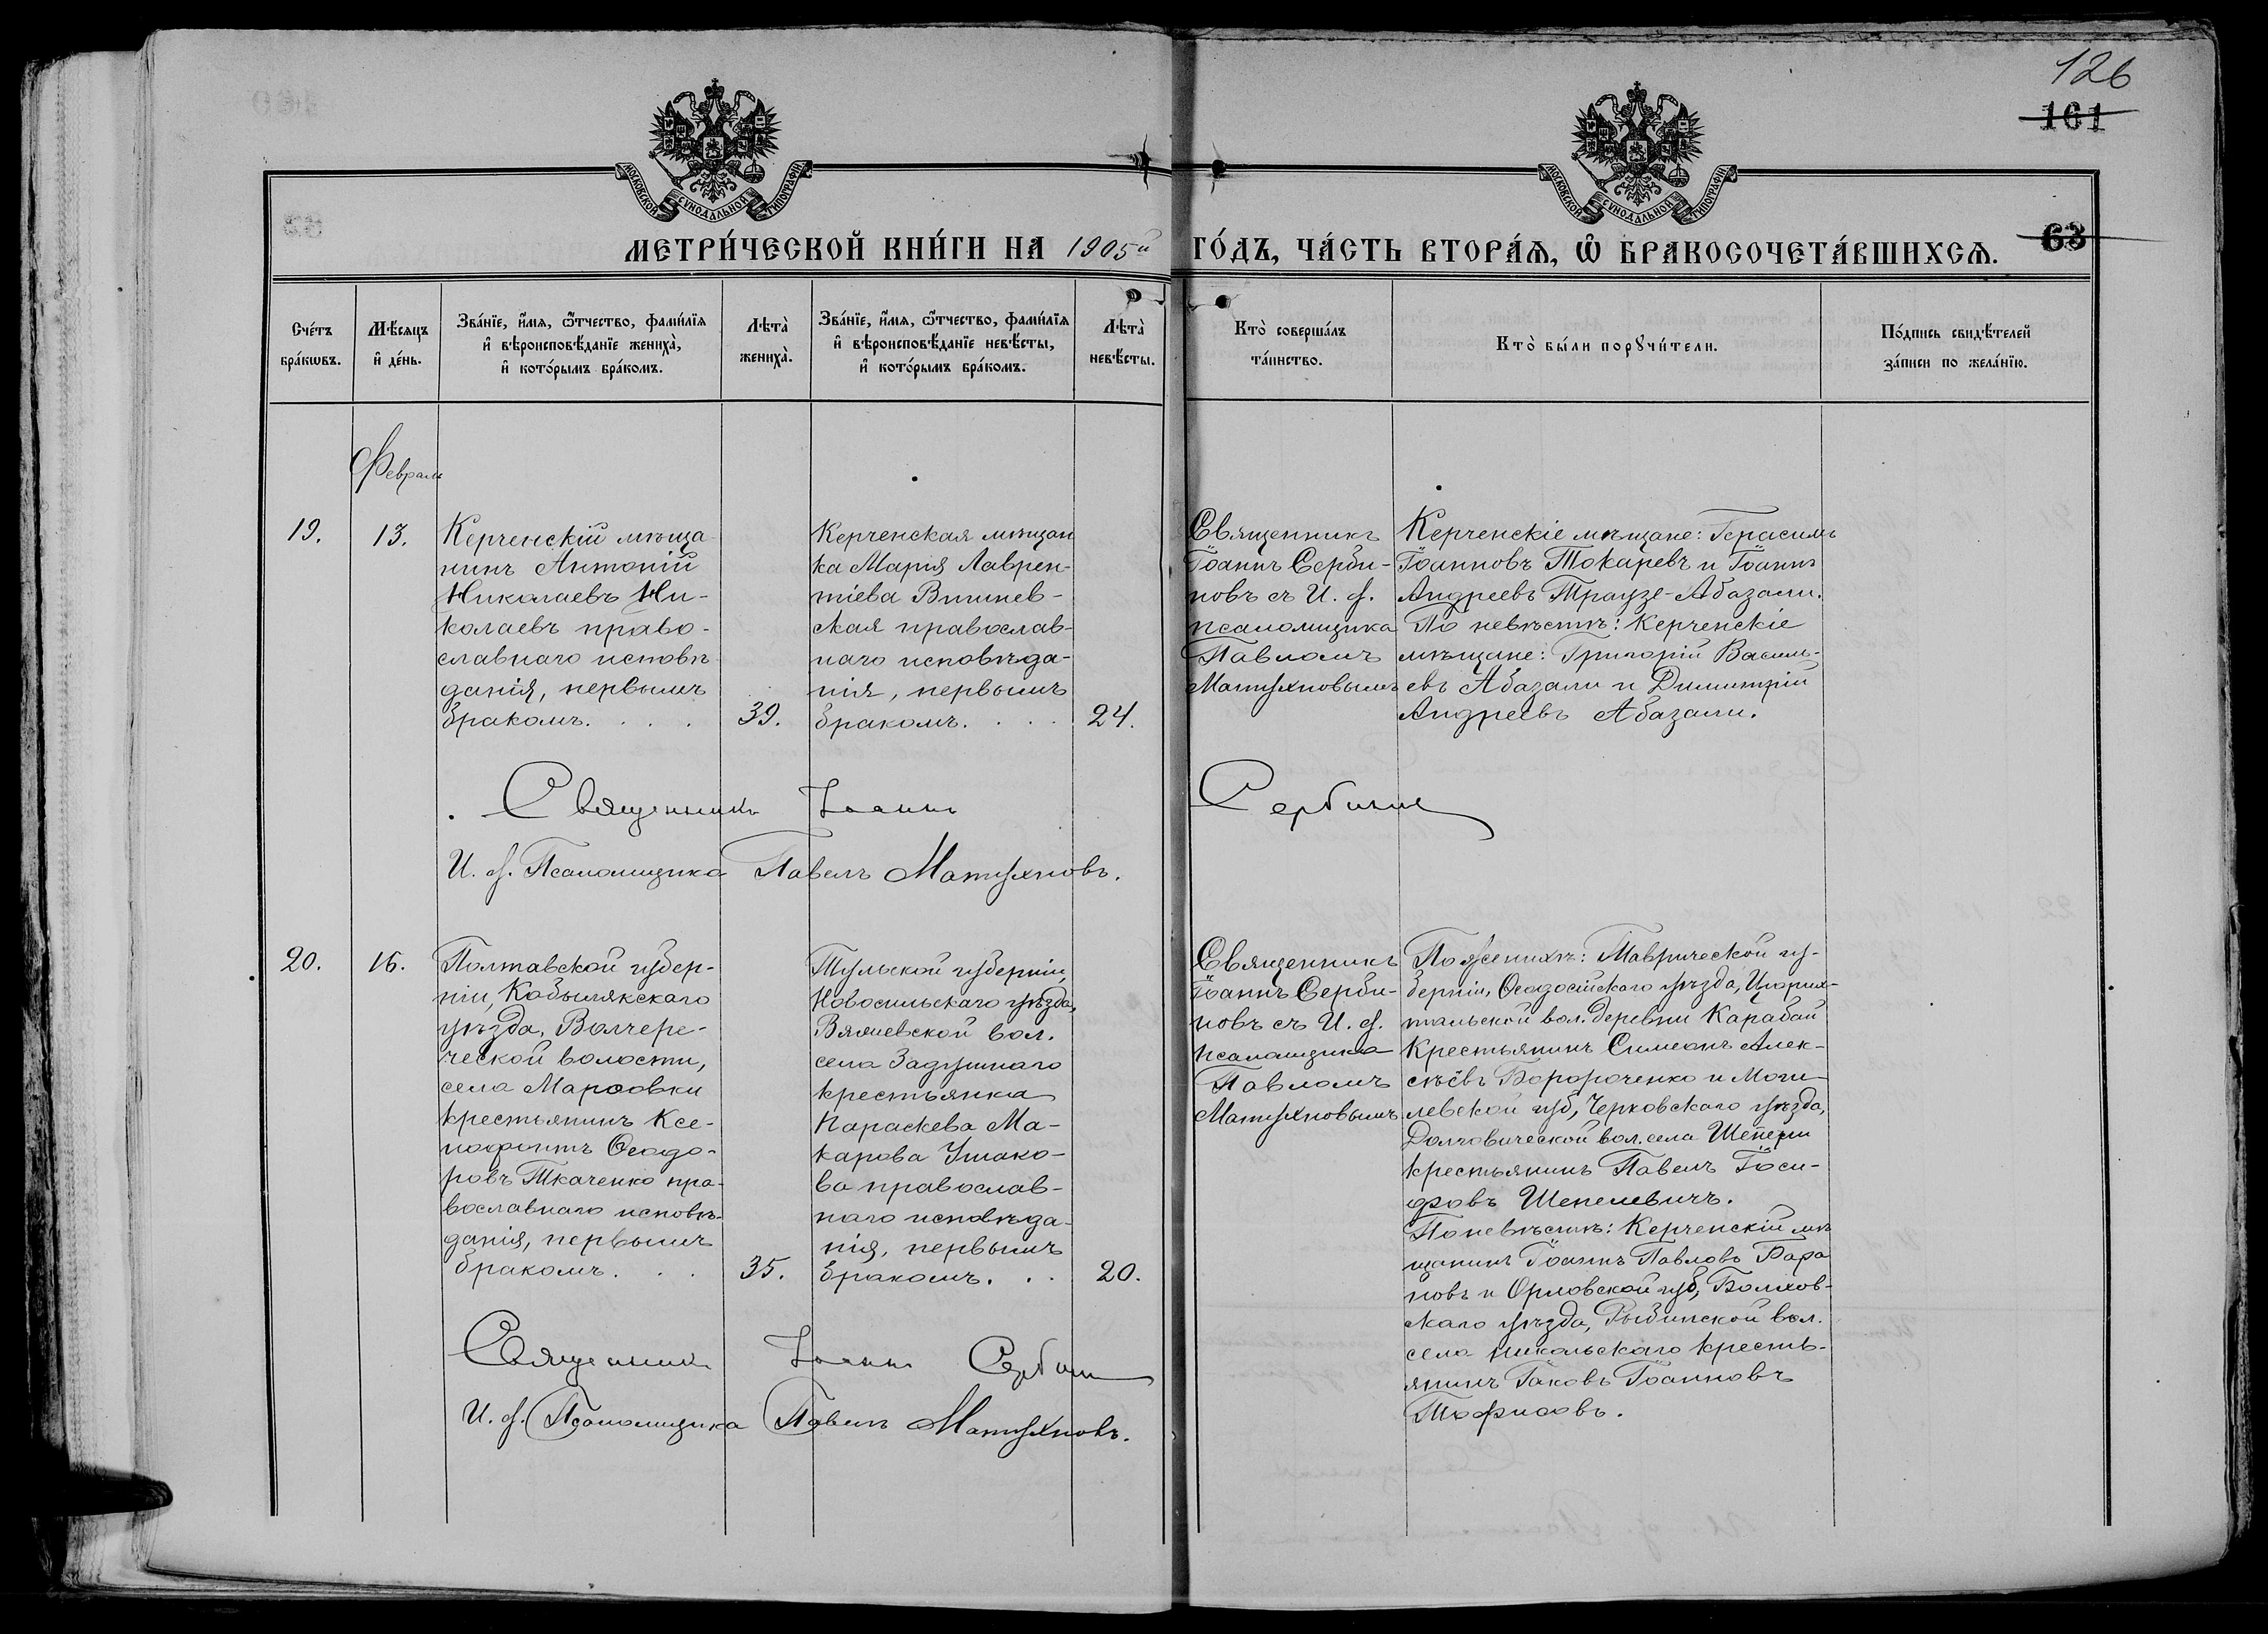 126
161
МОСКОВСКОЙ СѴНОДАЛЬНОЙ ТИПОГРАФІИ
МОСКОВСКОЙ СѴНОДАЛЬНОЙ ТИПОГРАФІИ
МЕТРИ́ЧЕСКОЙ КНИ́ГИ НА 1905й ГО́ДЪ, ЧА́СТЬ ВТОРА́Ѧ, Ѽ БРАКОСОЧЕТА́ВШИХСѦ.
63
Сче́тъ
бра́кѡвъ.
Мѣ́сяцъ
и҆ де́нь.
Зва́нїе, и҆́мѧ, ѻ҆́тчество, фами́лїѧ
и҆ вѣроисповѣ́данїе жениха̀,
и҆ кото́рымъ бра́комъ.
Лѣта̀
жениха̀.
Зва́нїе, и҆́мѧ, ѻ҆́тчество, фами́лїѧ
и҆ вѣроисповѣ́данїе невѣ́сты,
и҆ кото́рымъ бра́комъ.
Лѣта̀
невѣ́сты.
Кто̀ соверша́лъ
та́инство.
Кто̀ бы́ли порꙋчи́тели.
По́дпись свидѣ́телей
за́писи по жела́нїю.
Февраль
19.
13.
Керченскій мѣща-
нинъ Антоній
Николаевъ Ни-
колаевъ право-
славнаго исповѣ-
данія, первымъ
бракомъ. . . .
39.
Керченская мѣщан
ка Марія Лаврен-
тіева Вишнев-
ская православ-
наго исповѣда-
нія, первымъ
бракомъ. . . .
24.
Священникъ
Іоаннъ Серби-
новъ съ И. д.
псаломщика
Павломъ
Матухновымъ
Керченскіе мѣщане: Герасимъ
Іоанновъ Токаревъ и Іоаннъ
Андреевъ Траузе-Абазали.
По невѣстѣ: Керченскіе
мѣщане: Григорій Василь-
евъ Абазали и Димитрій
Андреевъ Абазали.
Священникъ Іоаннъ Сербиновъ
И. д. Псаломщика Павелъ Матухновъ.
20.
16.
Полтавской губер-
ніи, Кобылякскаго
уѣзда, Волчере-
ческой волости,
села Марковки
крестьянинъ Ксе-
нофонтъ Ѳеодо-
ровъ Ткаченко пра-
вославнаго исповѣ-
данія, первымъ
бракомъ. . .
35.
Тульской губерніи,
Новосильскаго уѣзда,
Вяжевской вол.
села Задушнаго
крестьянка
Параскева Ма-
карова Ушако-
ва православ-
наго исповѣда-
нія, первымъ
бракомъ. . .
20.
Священникъ
Іоаннъ Серби-
новъ съ И. д.
псаломщика
Павломъ
Матухновымъ
По женихѣ: Таврической гу-
берніи, Ѳеодосійскаго уѣзда,
тальской вол. деревни Карабай
крестьянинъ Симеонъ Алек-
сѣевъ и Моги-
левской губ, Чериковскаго уѣзда,
Долговической вол. села
крестьянинъ Павелъ Іоси-
фовъ Шепелевичъ.
По невѣстѣ: Керченскій мѣ
щанинъ Іоаннъ Павловъ Бара
новъ и Орловской губ, Болхов-
скаго уѣзда, Рыбинской вол.
села Никольскаго кресть-
янинъ Іаковъ Іоанновъ
Священникъ Іоаннъ Сербиновъ
И. д. Псаломщика Павелъ Матухновъ.